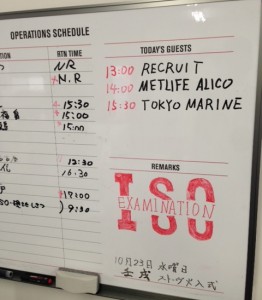 OPERATIONS SCHEDULE
RTN TIME
TODAY'S GUESTS
NR
N.R
13:00 RECRUIT
14:00 METLIFE ALICO
15:30 TOKYO MARINE
15:30
15:00
15:00
16:30
17:00
9:30
REMARKS
ISO
EXAMINATION
10月23日 水曜日
壬戌 ストーブ火入式